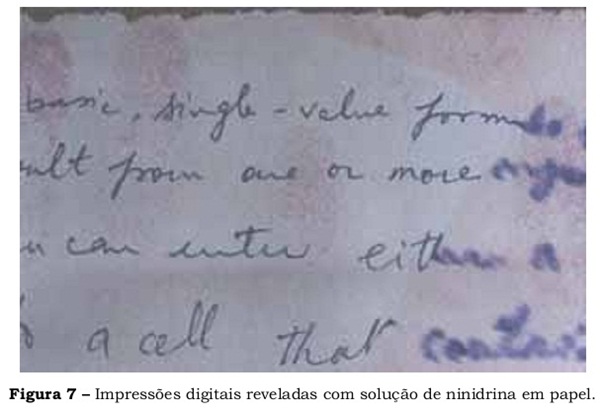 basic, single-value formula
ult from one or more
u can enter either a
a cell that contains
Figura 7 – Impressões digitais reveladas com solução de ninidrina em papel.